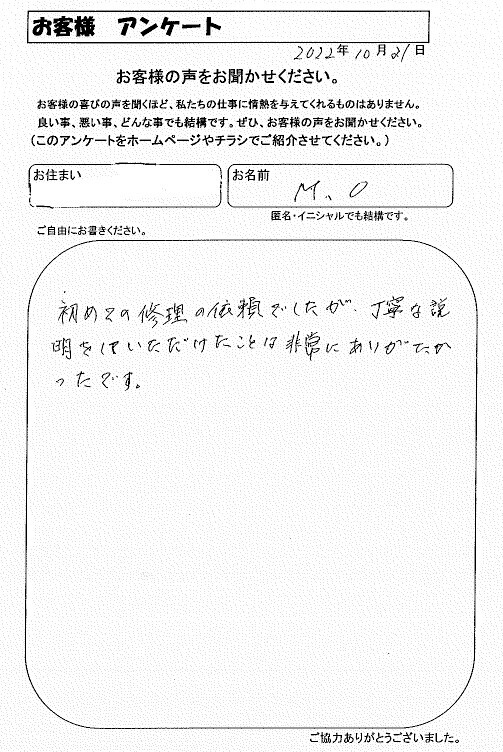 お客様 アンケート
2022年10月21日
お客様の声をお聞かせください。
お客様の喜びの声を聞くほど、私たちの仕事に情熱を与えてくれるものはありません。
良い事、悪い事、どんな事でも結構です。ぜひ、お客様の声をお聞かせください。
(このアンケートをホームページやチラシでご紹介させてください。)
お住まい
お名前
M、O
匿名・イニシャルでも結構です。
ご自由にお書きください。
初めての修理の依頼でしたが、丁寧な説
明をしていただけたことは非常にありがたか
ったです。
ご協力ありがとうございました。